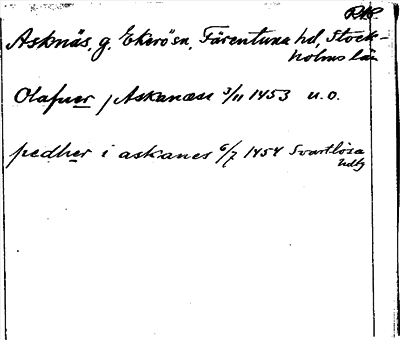 Asknäs, g. Ekerö sn, Färentuna hd, Stock-
holms län
Olafuer j Askanæse 3/11 1453 u.o.
pedher i askanes 6/7 1454 Svartlösa
hdtg